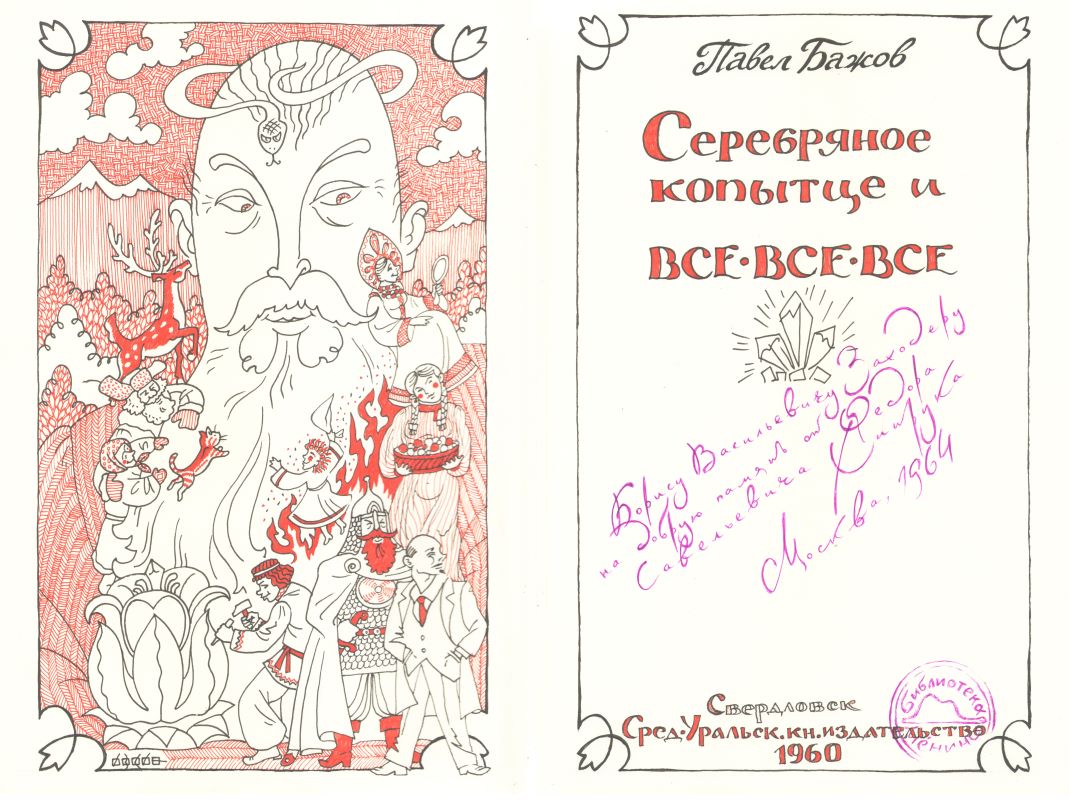 Павел Бажов
Серебряное
копытце и
все·все·все
Борису Васильевичу Заходеру
на добрую память от Федора
Савельевича Химчука
Москва, 1964
Свердловск
Сред.Уральск.кн.издательство
1960
Библиотека
Ленина